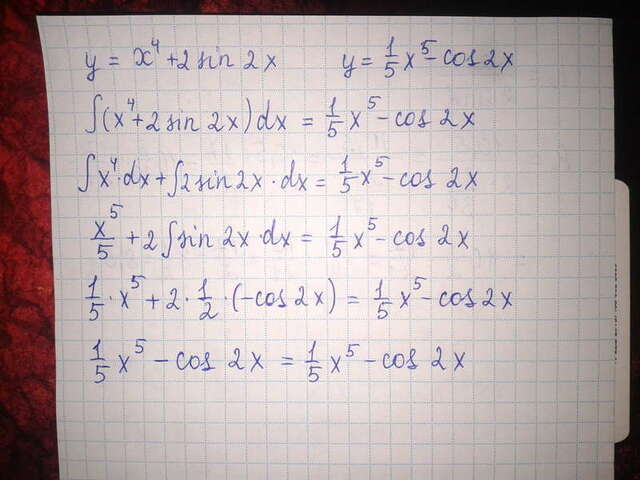 y = x⁴ + 2 sin 2x y = 1/5 x⁵ - cos 2x
∫(x⁴ + 2 sin 2x) dx = 1/5 x⁵ - cos 2x
∫x⁴·dx + ∫2 sin 2x · dx = 1/5 x⁵ - cos 2x
x⁵/5 + 2∫sin 2x · dx = 1/5 x⁵ - cos 2x
1/5 · x⁵ + 2 · 1/2 · (-cos 2x) = 1/5 x⁵ - cos 2x
1/5 x⁵ - cos 2x = 1/5 x⁵ - cos 2x